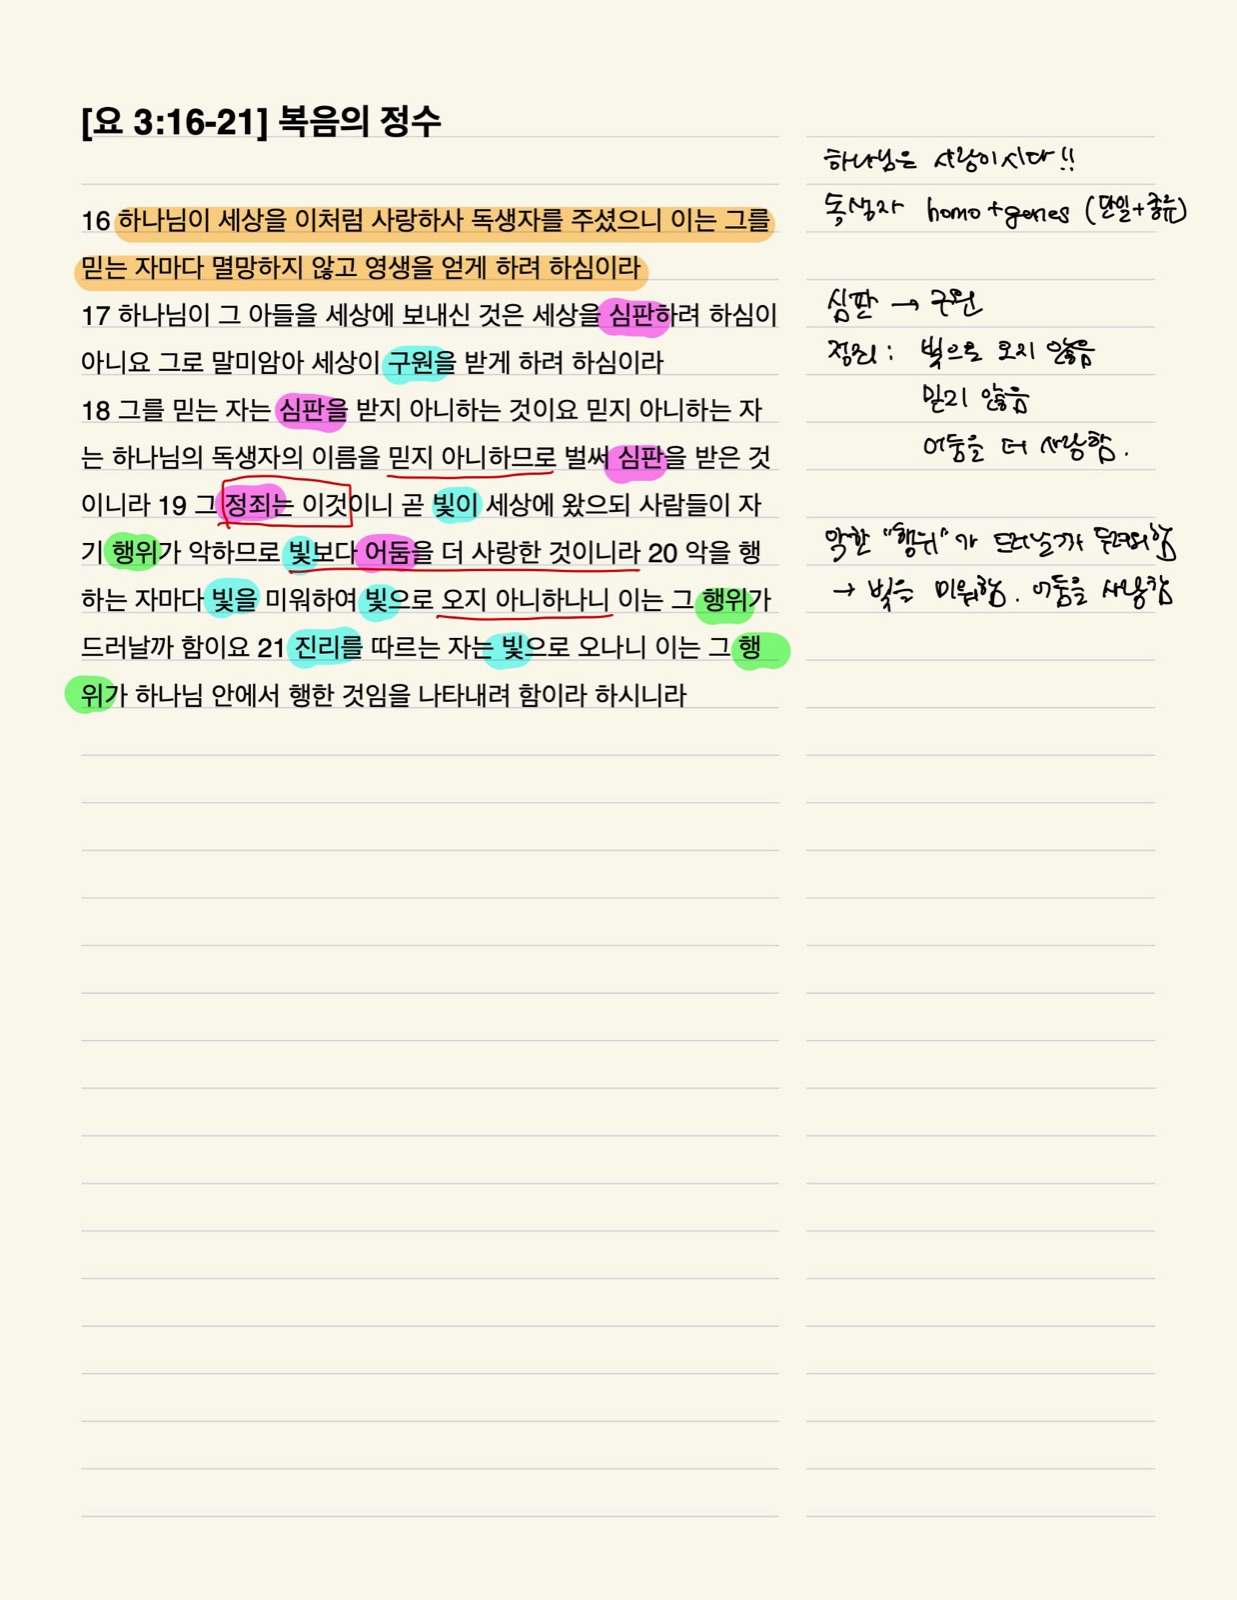 [요 3:16-21] 복음의 정수
16 하나님이 세상을 이처럼 사랑하사 독생자를 주셨으니 이는 그를
믿는 자마다 멸망하지 않고 영생을 얻게 하려 하심이라
17 하나님이 그 아들을 세상에 보내신 것은 세상을 심판하려 하심이
아니요 그로 말미암아 세상이 구원을 받게 하려 하심이라
18 그를 믿는 자는 심판을 받지 아니하는 것이요 믿지 아니하는 자
는 하나님의 독생자의 이름을 믿지 아니하므로 벌써 심판을 받은 것
이니라 19 그 정죄는 이것이니 곧 빛이 세상에 왔으되 사람들이 자
기 행위가 악하므로 빛보다 어둠을 더 사랑한 것이니라 20 악을 행
하는 자마다 빛을 미워하여 빛으로 오지 아니하나니 이는 그 행위가
드러날까 함이요 21 진리를 따르는 자는 빛으로 오나니 이는 그 행
위가 하나님 안에서 행한 것임을 나타내려 함이라 하시니라
하나님은 사랑이시다!!
독생자 homo+genes (단일+종류)
심판 → 구원
정죄: 빛으로 오지 않음
믿지 않음
어둠을 더 사랑함.
악한 "행위"가 드러날까 두려워함
→ 빛을 미워함. 어둠을 사랑함